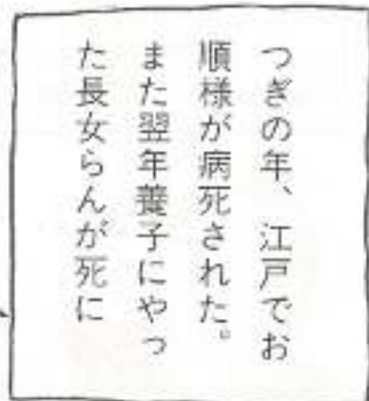 つぎの年、江戸でお
順様が病死された。
また翌年養子にやっ
た長女らんが死に